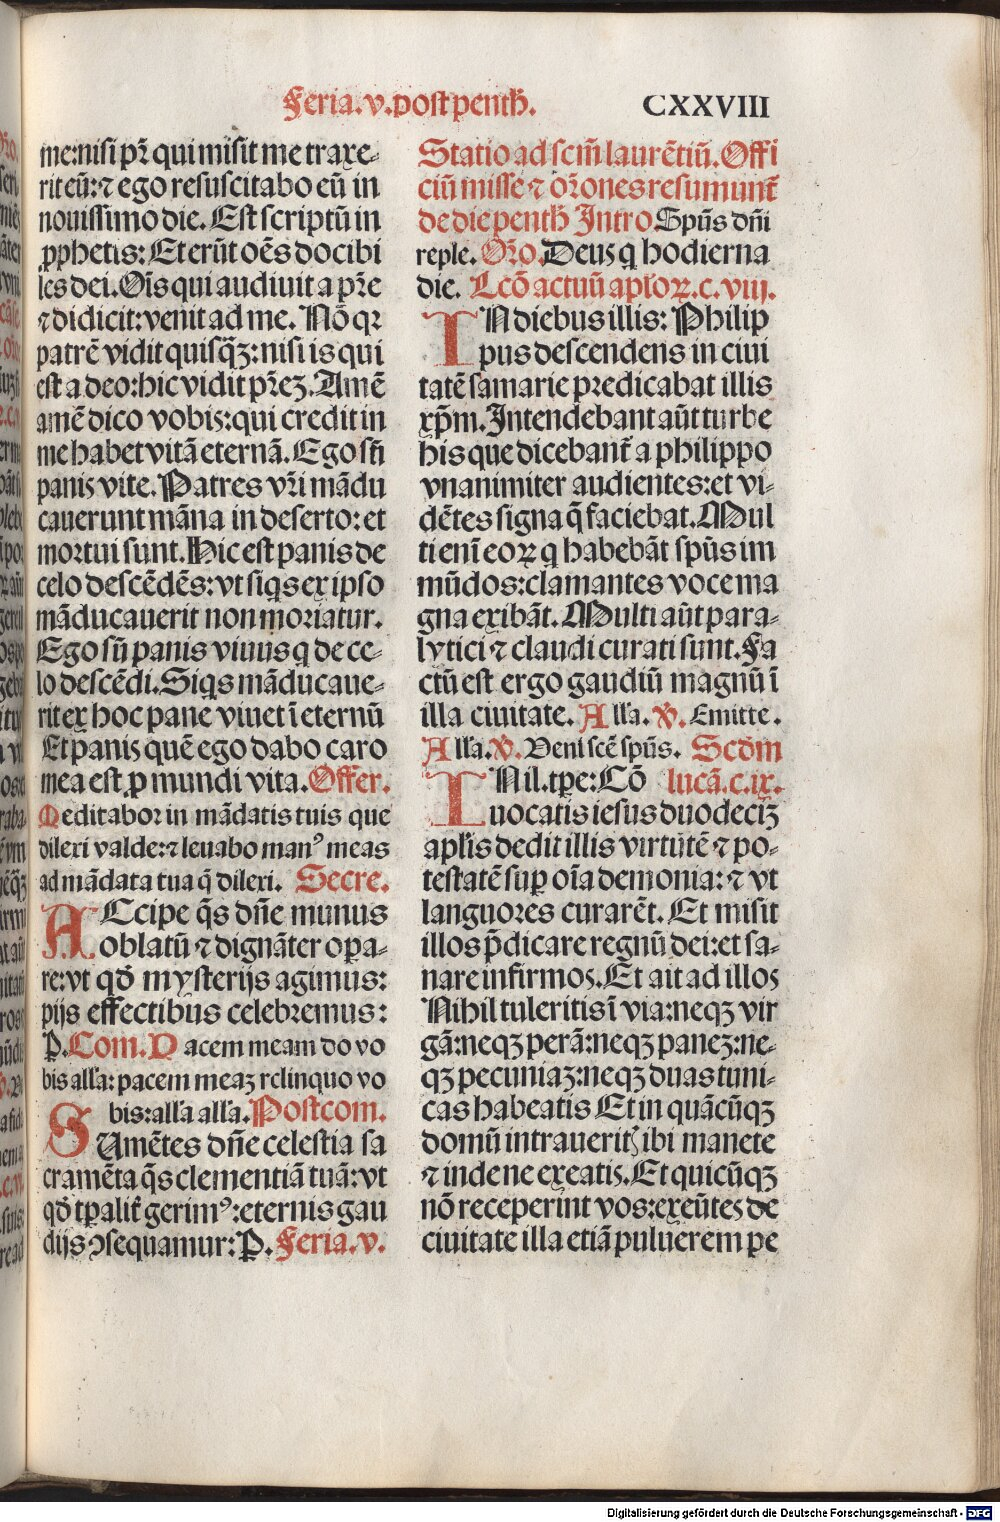 Feria.v.post penth̄. CXXVIII
me:nisi pr̄ qui misit me traxe-
rit eū:⁊ ego resuscitabo eū in
nouissimo die. Est scriptū in
ꝓphetis: Et erūt oēs docibi
les dei. Oīs qui audiuit a pr̄e
⁊ didicit:venit ad me. Nō qꝛ
patrē vidit quisqꝫ:nisi is qui
est a deo:hic vidit pr̄eꝫ. Amē
amē dico vobis:qui credit in
me habet vitā eternā. Ego sū
panis vite. Patres vr̄i mādu
cauerunt māna in deserto:et
mortui sunt. Hic est panis de
celo descēdēs:vt siqs ex ipso
māducauerit non moriatur.
Ego sū panis viuus q de ce-
lo descēdi. Siqs māducaue-
rit ex hoc pane viuet ī eternū
Et panis quē ego dabo caro
mea est ꝓ mundi vita. Offer.
Meditabor in mādatis tuis que
dilexi valde:⁊ leuabo manꝰ meas
ad mādata tua q̄ dilexi. Secre.
ACcipe q̄s dn̄e munus
oblatū ⁊ dignāter oꝑa-
re:vt qd̄ mysterijs agimus:
pijs effectibus celebremus:
P. Com. Pacem meam do vo
bis alľa: pacem meaꝫ rclinquo vo
bis:alľa alľa. Postcom.
SUmētes dn̄e celestia sa
cramēta q̄s clementiā tuā:vt
qd̄ tꝑalit̄ gerimꝰ:eternis gau
dijs ꝯsequamur: P. Feria.v.
Statio ad scm̄ laurētiū. Offi
ciū misse ⁊ or̄ones resumunt̄
de die penth̄ Intro. Spūs dn̄i
reple. Or̄o. Deus q hodierna
die. Lcō actuū aploꝝ.c.viij.
IN diebus illis: Philip
pus descendens in ciui
tatē samarie predicabat illis
xp̄m. Intendebant aūt turbe
his que dicebant̄ a philippo
vnanimiter audientes:et vi-
dētes signa q̄ faciebat. Mul
ti enī eoꝝ q habebāt spūs im
mūdos:clamantes voce ma
gna exibāt. Multi aūt para-
lytici ⁊ claudi curati sunt. Fa
ctū est ergo gaudiū magnū ī
illa ciuitate. Alľa. ℣. Emitte.
Alľa. ℣. Veni scē spūs. Scdm
IN il.tꝑe: Cō lucā.c.ix.
uocatis iesus duodeciꝫ
aplīs dedit illis virtutē ⁊ po-
testatē suꝑ oīa demonia: ⁊ vt
languores curarēt. Et misit
illos p̄dicare regnū dei:et sa-
nare infirmos. Et ait ad illos
Nihil tuleritis ī via:neqꝫ vir
gā:neqꝫ perā:neqꝫ paneꝫ:ne-
qꝫ pecuniaꝫ:neqꝫ duas tuni-
cas habeatis Et in quācūqꝫ
domū intraueritꝭ ibi manete
⁊ inde ne exeatis. Et quicūqꝫ
nō receperint vos:exeūtes de
ciuitate illa etiā puluerem pe
Digitalisierung gefördert durch die Deutsche Forschungsgemeinschaft - DFG